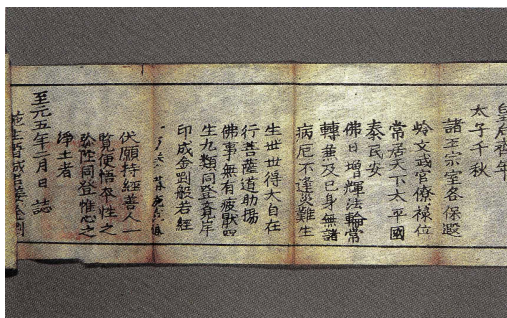 皇后年
太子千秋
諸王宗室各保遐
齡文武官僚祿位
常居天下太平國
泰民安
佛日增輝法輪常
轉兼及己身無諸
病厄不逢災難生
生世世得大自在
行菩薩道助揚
佛事無有疲猒四
生九類同登岸
印成金剛般若經
伏願持經善人一
覧便悟本性之
同登惟心之
淨土者
至元五年二月日 誌